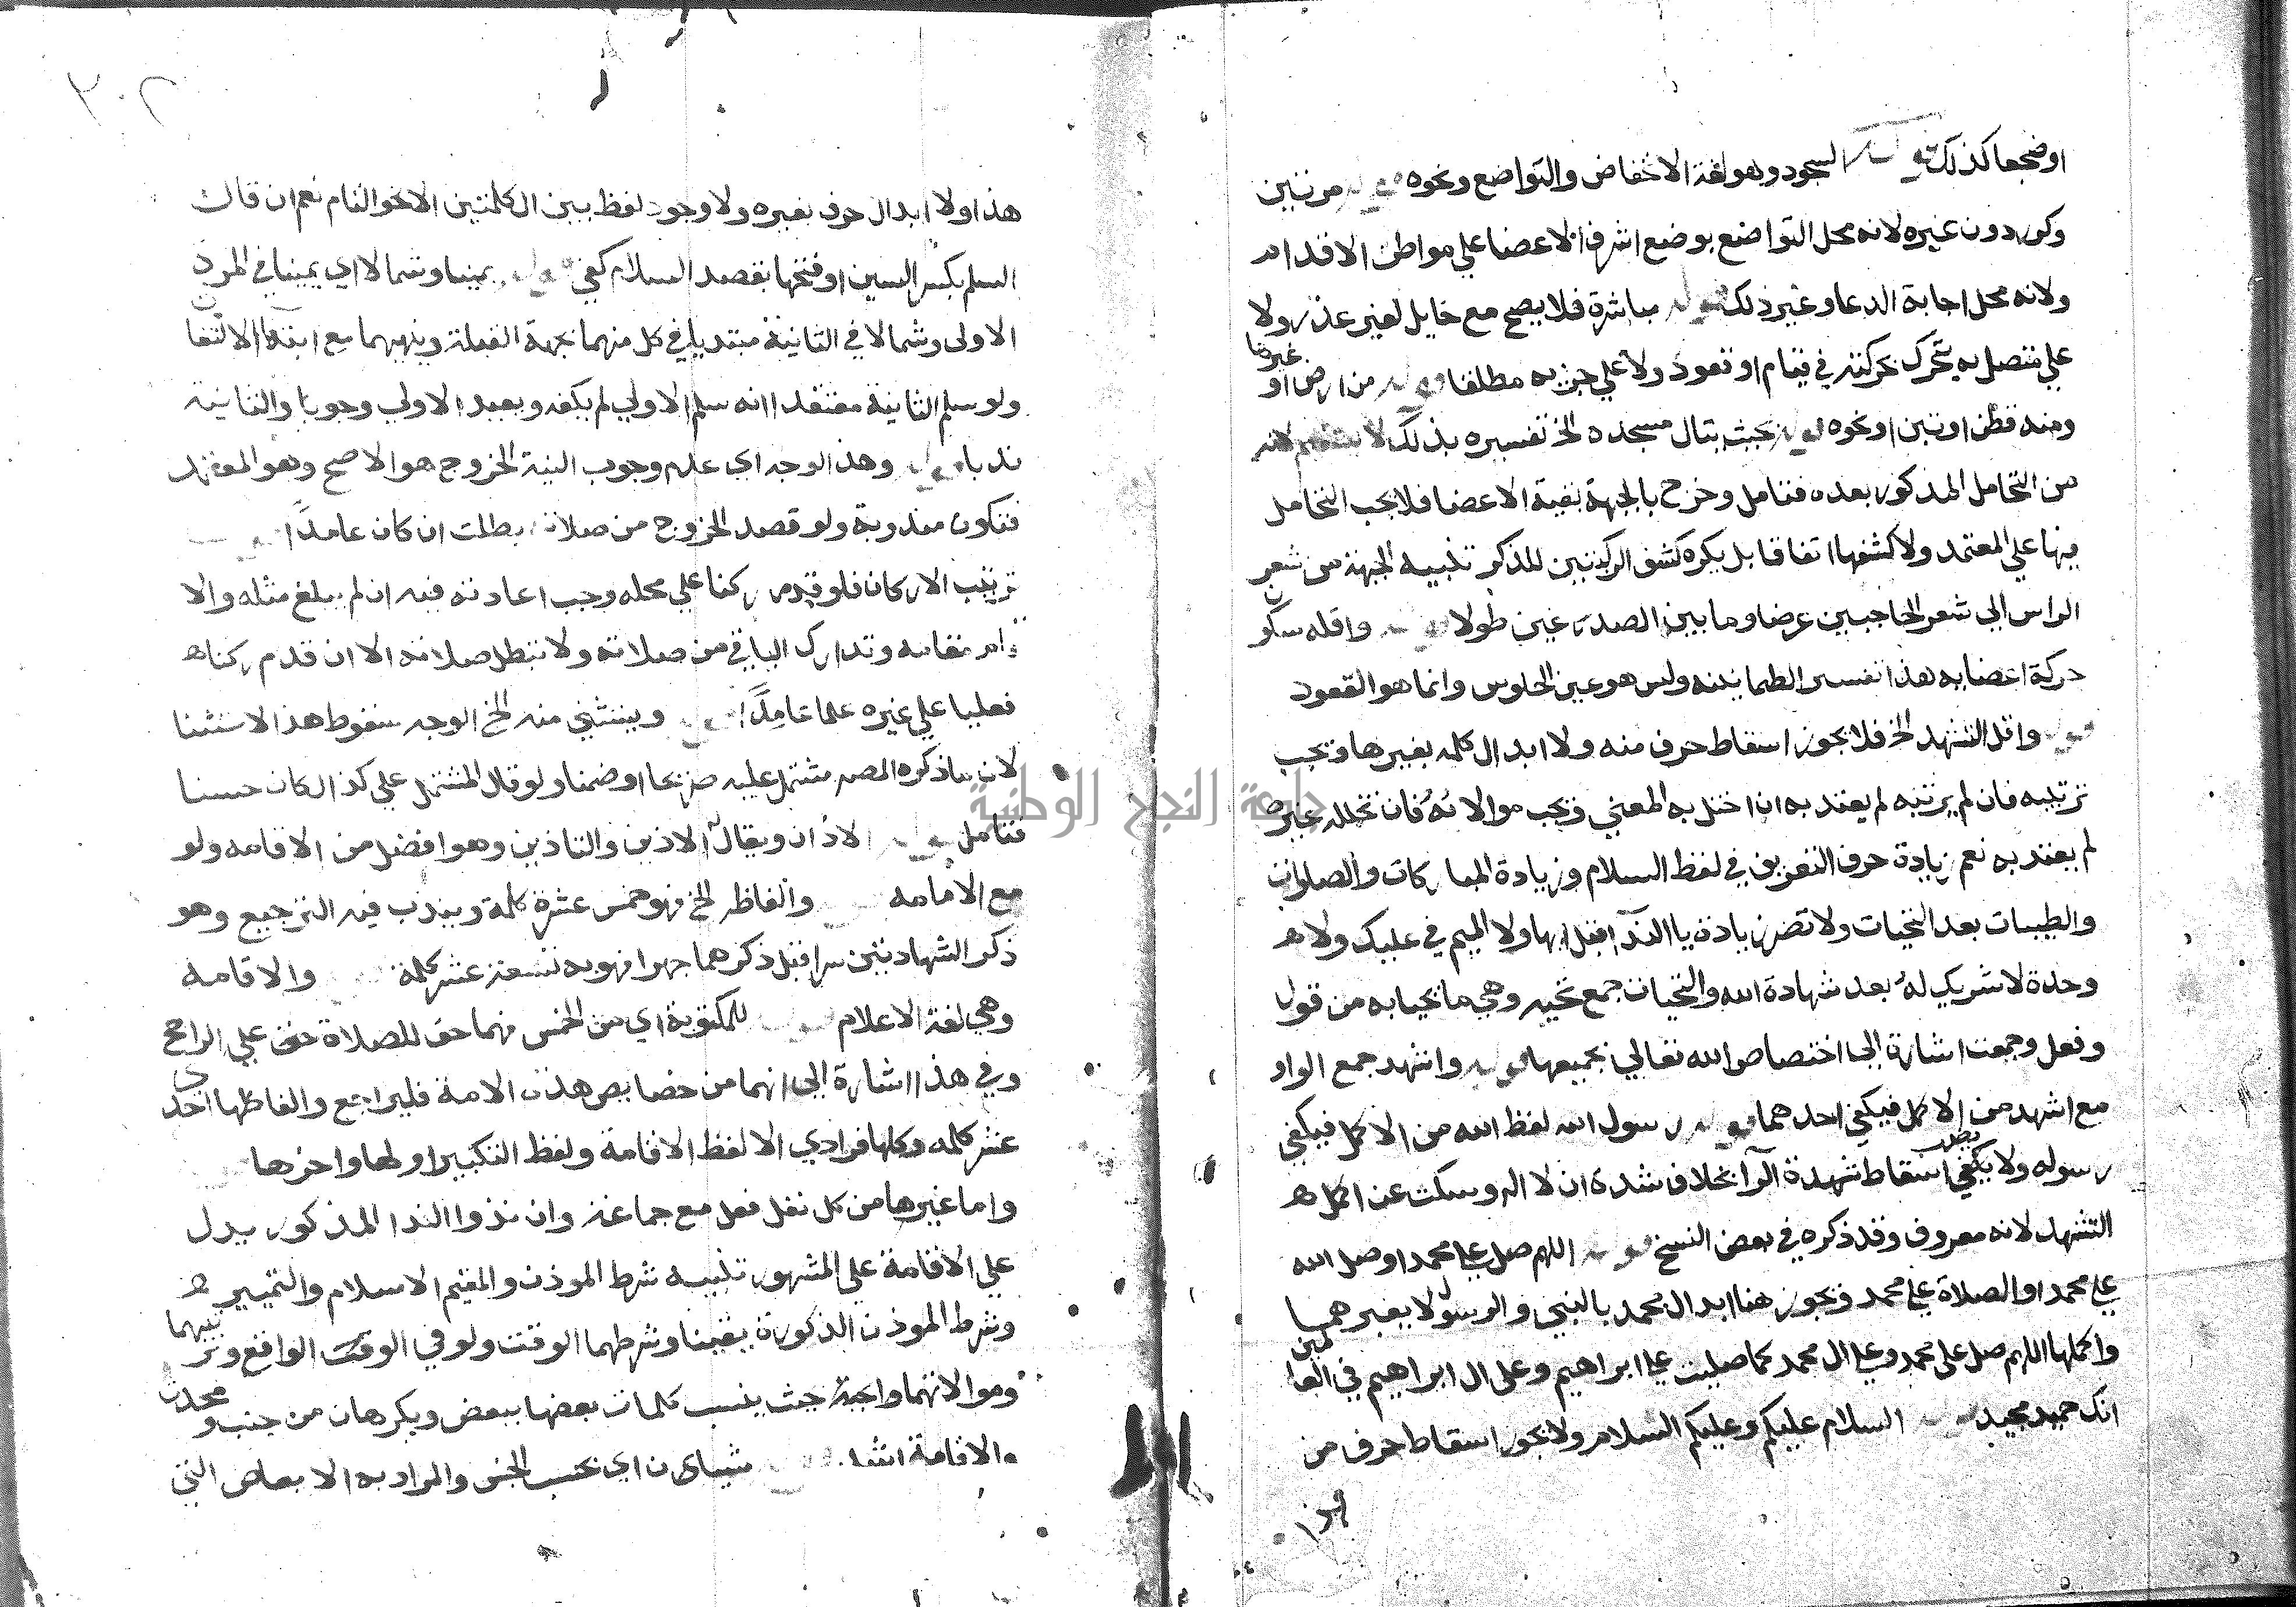 اوضجعا كذلك قوله السجود وهو لغة الانخفاض والتواضع ونحوه قوله مرتين
وكرر دون غيره لانه محل التواضع بوضع اشرف الاعضا علي مواطن الاقدام
ولانه محل اجابة الدعا وغير ذلك قوله مباشرة فلا يصح مع حايل لغير عذر ولا
علي متصل به يتحرك بحركته في قيام او قعود ولا علي جزيه مطلقا قوله من ارض او غيرها
ومنه قطن او تبن او نحوه قوله بحيث ينال مسجده الخ تفسيره بذلك لا يستقيم لانه
من التحامل المذكور بعده فتامل وخرج بالجبهة بقية الاعضا فلا يجب التحامل
فيها علي المعتمد ولا كشفها اتفاقا بل يكره كشف الركبتين للذكر تنبيه الجبهة من شعر
الراس الي شعر الحاجبين عرضا وما بين الصدغين طولا قوله واقله سكون
حركة اعضايه هذا تفسير الطمانينة وليس هو عين الجلوس وانما هو القعود
قوله واقل التشهد الخ فلا يجوز اسقاط حرف منه ولا ابدال كلمه بغيرها ويجب
ترتيبه فان لم يرتبه لم يعتد به ان اختل به المعني ويجب موالاته فان تخلله غيره
لم يعتد به نعم زيادة حرف التعريف في لفظ السلام وزيادة المباركات والصلوات
والطيبات بعد التحيات ولا تضر زيادة يا الندآ قبل ايها ولا الميم في عليك ولا
وحدة لا شريك له بعد شهادة الله والتحيات جمع تحيه وهي ما يحيا به من قول
وفعل وجمعت اشارة الي اختصاص الله تعالي بجميعها قوله واشهد جمع الواو
مع اشهد من الاكمل فيكفي احدهما قوله رسول الله لفظ الله من الاكمل فيكفي
رسوله ولا يكفي اسقاط شهدة الرآ بخلاف شدة ان لا اله وسكت عن اكمل
التشهد لانه معروف وقد ذكره في بعض النسخ قوله اللهم صل علي محمد او صل الله
علي محمد او الصلاة علي محمد ويجوز هنا ابدال محمد بالنبي والرسول لا بغيرهما
واكملها اللهم صل على محمد وعلي ال محمد كما صليت علي ابراهيم وعلى ال ابراهيم في العالمين
انك حميد مجيد قوله السلام عليكم وعليكم السلام ولا يجوز اسقاط حرف من
هذا
٣٠٢
هذا ولا ابدال حرف بغيره ولا وجود لفظ بين الكلمتين الا نحو التام نعم ان قال
السلم بكسر السين او فتحها بقصد السلام كفي قوله يمينا وشمالا اي يمينا في المرة
الاولى وشمالا في الثانية مبتديا في كل منهما بجهة القبلة وينهيهما مع انتهآ الالتفات
ولو سلم الثانية معتقدا انه سلم الاولي لم يكفه ويعيد الاولي وجوبا والثانية
ندبا قوله وهذا الوجه اي عدم وجوب النية الخروج هو الاصح وهو المعتمد
فتكون مندوبة ولو قصد الخروج من صلاته بطلت ان كان عامدا قوله
ترتيب الاركان فلو قدم ركنا علي محله وجب اعادته فيه ان لم يبلغ مثله والا
قام مقامه وتدارك الباقي من صلاته ولا تبطل صلاته الا ان قدم ركنا
فعليا علي غيره علما عامدا قوله ويستثني منه الخ الوجه سقوط هذا الاستثنا
لان ما ذكره المصـ مشتمل عليه صريحا او ضمنا ولو قال المشتمل علي كذا لكان حسنا
فتامل قوله الاذان ويقال الاذين والتاذين وهو افضل من الاقامه ولو
مع الامامه والفاظه الخ فهو خمس عشرة كلمة ويندب فيه الترجيع وهو
ذكر الشهادتين سرا قبل ذكرهما جهرا فهو به تسعة عشر كلمة والاقامه
وهي لغة الاعلام قوله للمكتوبة اي من الخمس فهما حق للصلاة حق علي الراجح
وفي هذا اشارة الي انهما من خصايص هذه الامة فليراجع والفاظها احدي
عشر كلمه وكلها فرادي الا لفظ الاقامة ولفظ التكبير اولها واخرها
واما غيرها من كل نفل فعل مع جماعة وان نذوا الندا المذكور بدل
علي الاقامة علي المشهور تنبيه شرط الموذن والمقيم الاسلام والتمييز
وشرط الموذن الذكورة يقينا وشرطهما الوقت ولو في الوقت الواقع وترتيبهما
وموالاتهما واجبة حيث ينسب كلمات بعضها ببعض ويكرهان من جنب ومحدث
والاقامة اشد قوله شيان اي بحسب الجنس والمراد به الابعاض التي
جامعة النجاح الوطنية